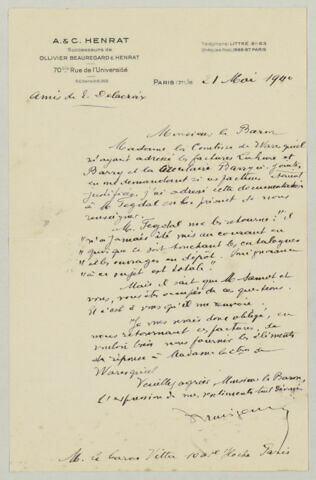 A. & C. HENRAT
Successeurs de
OLLIVIER BEAUREGARD & HENRAT
70 Rue de l'Université
Téléphone: LITTRÉ
PARIS 21 Mai 1940
Amis de E. Delacroix
Monsieur le Baron
Madame la Comtesse de Waresquiel
m'ayant adressé les factures et
Barry et la circulaire Barry
en me demandant si ces factures
justifiées, j'ai adressé cette documentation
à M. Tegdal en le priant de nous
renseigner.
M. Tegdal me les retourne: "il
"n'a jamais été mis au courant en
"quoi que ce soit touchant les catalogues
"et les ouvrages en dépôt.
"à ce sujet est totale."
Mais il sait que M. Samot et
vous, vous êtes occupés de ces questions.
Il c'est à vous qu'il me renvoie.
Je vous serais donc obligé, en
vous retournant ces factures, de
vouloir bien nous fournir les éléments
de réponse à Madame la Ctsse de
Waresquiel
Veuillez agréer, Monsieur le Baron,
l'expression de mes sentiments
M. le baron Vitta Hoche Paris